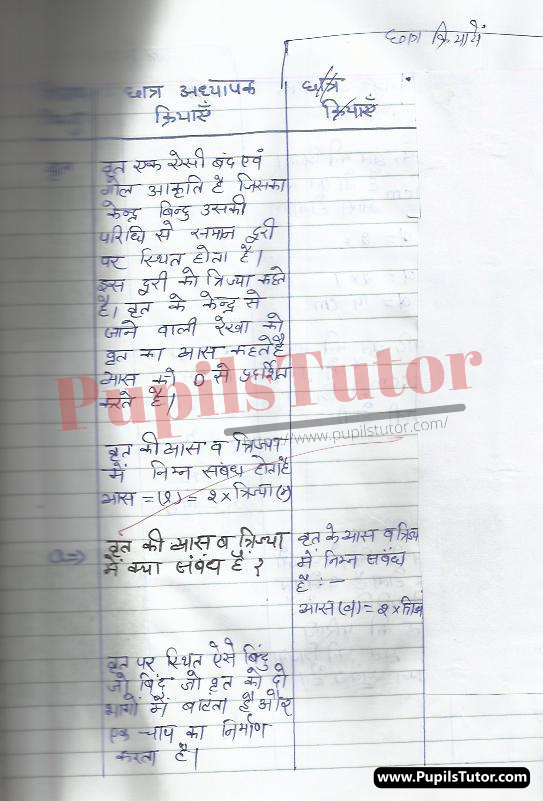 छात्र क्रियायें
छात्र अध्यापक
क्रियाएँ
छात्र
क्रियाएँ
वृत एक ऐसी बंद एवं
गोल आकृति है जिसका
केन्द्र बिन्दु उसकी
परिधि से समान दुरी
पर स्थित होता है।
इस दुरी को त्रिज्या कहते
है। वृत के केन्द्र से
जाने वाली रेखा को
वृत का व्यास कहते है
व्यास को D से प्रदर्शित
करते है।
PupilsTutor
http://www.pupilstutor.com/
वृत की व्यास व त्रिज्या
में निम्न संबंध होता है
व्यास = (2) = 2 x त्रिज्या (r)
वृत की व्यास व त्रिज्या
में क्या संबंध है ?
वृत के व्यास व त्रिज्य
में निम्न संबंध
है : —
व्यास (d) = 2 x त्रिज्य
वृत पर स्थित ऐसे बिंदु
जो बिंदु जो वृत को दो
भागों में बाटता है और
एक चाप का निर्माण
करता है।
www.PupilsTutor.com